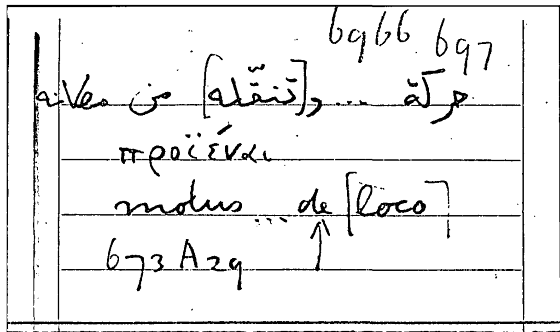 6966 697
حركة ... و[تنقّله] من مكانه
προϊέναι
motus ... de [loco]
↑
673 A 29